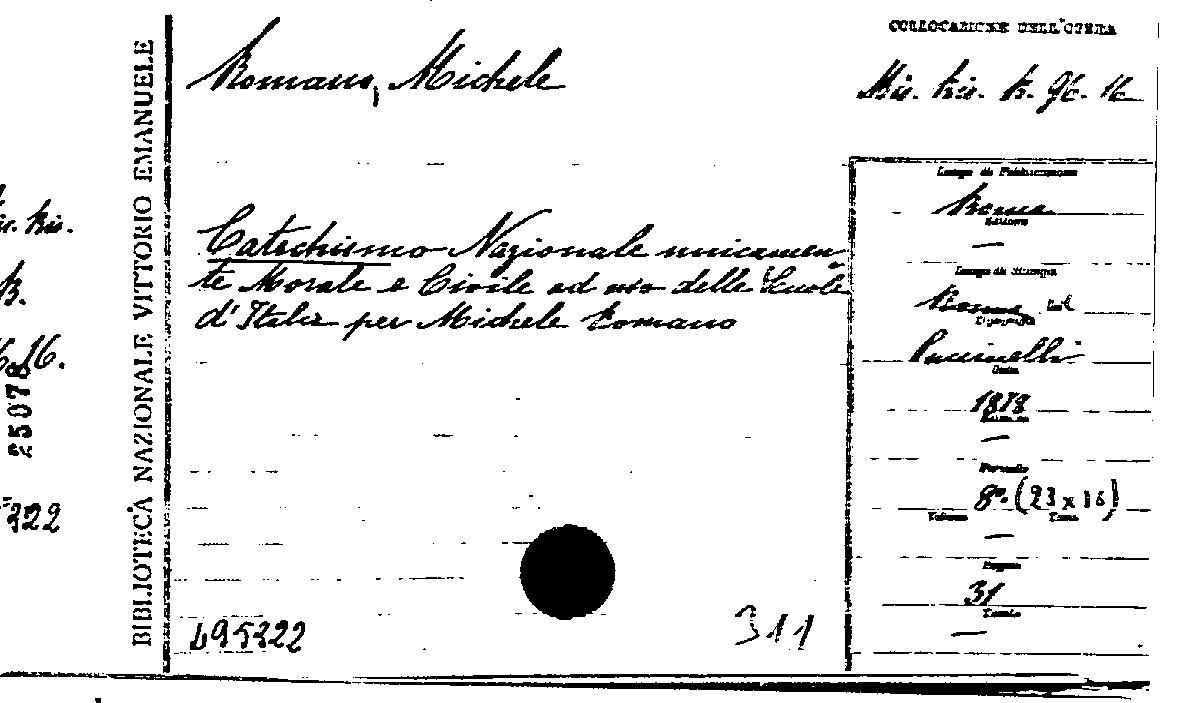 COLLOCAZIONE DELL'OPERA
Romano, Michele
Mis. Ris. B. 96. 16
Catechismo Nazionale unicamen-
te Morale e Civile ad uso delle Scuole
d'Italia per Michele Romano
Luogo di Pubblicazione
Roma
Editore
—
Luogo di Stampa
Roma
Tipografia
Puccinelli
Data
1878
Edizione
—
Formato
8º. (23 x 16)
Volume Tomo
—
Pagine
31
Tavole
—
495322
311
BIBLIOTECA NAZIONALE VITTORIO EMANUELE
B.
16.
25078
322